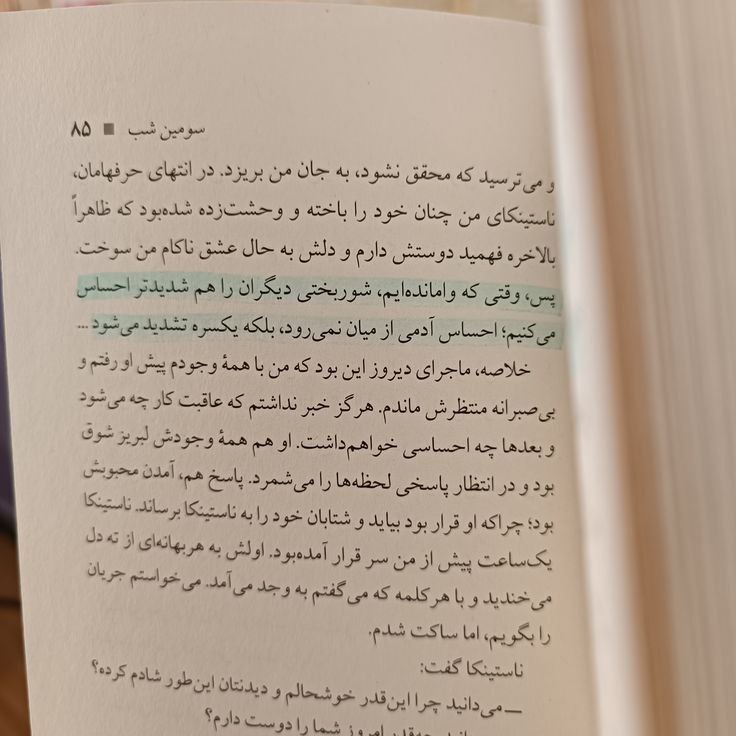 سومین شب ■ ۸۵
و می‌ترسید که محقق نشود، به جان من بریزد. در انتهای حرفهامان،
ناستینکای من چنان خود را باخته و وحشت‌زده شده‌بود که ظاهراً
بالاخره فهمید دوستش دارم و دلش به حال عشق ناکام من سوخت.
پس، وقتی که وامانده‌ایم، شوربختی دیگران را هم شدیدتر احساس
می‌کنیم؛ احساس آدمی از میان نمی‌رود، بلکه یکسره تشدید می‌شود ...
خلاصه، ماجرای دیروز این بود که من با همهٔ وجودم پیش او رفتم و
بی‌صبرانه منتظرش ماندم. هرگز خبر نداشتم که عاقبت کار چه می‌شود
و بعدها چه احساسی خواهم‌داشت. او هم همهٔ وجودش لبریز شوق
بود و در انتظار پاسخی لحظه‌ها را می‌شمرد. پاسخ هم، آمدن محبوبش
بود؛ چراکه او قرار بود بیاید و شتابان خود را به ناستینکا برساند. ناستینکا
یک‌ساعت پیش از من سر قرار آمده‌بود. اولش به هربهانه‌ای از ته دل
می‌خندید و با هرکلمه که می‌گفتم به وجد می‌آمد. می‌خواستم جریان
را بگویم، اما ساکت شدم.
ناستینکا گفت:
— می‌دانید چرا این‌قدر خوشحالم و دیدنتان این‌طور شادم کرده؟
امروز شما را دوست دارم؟